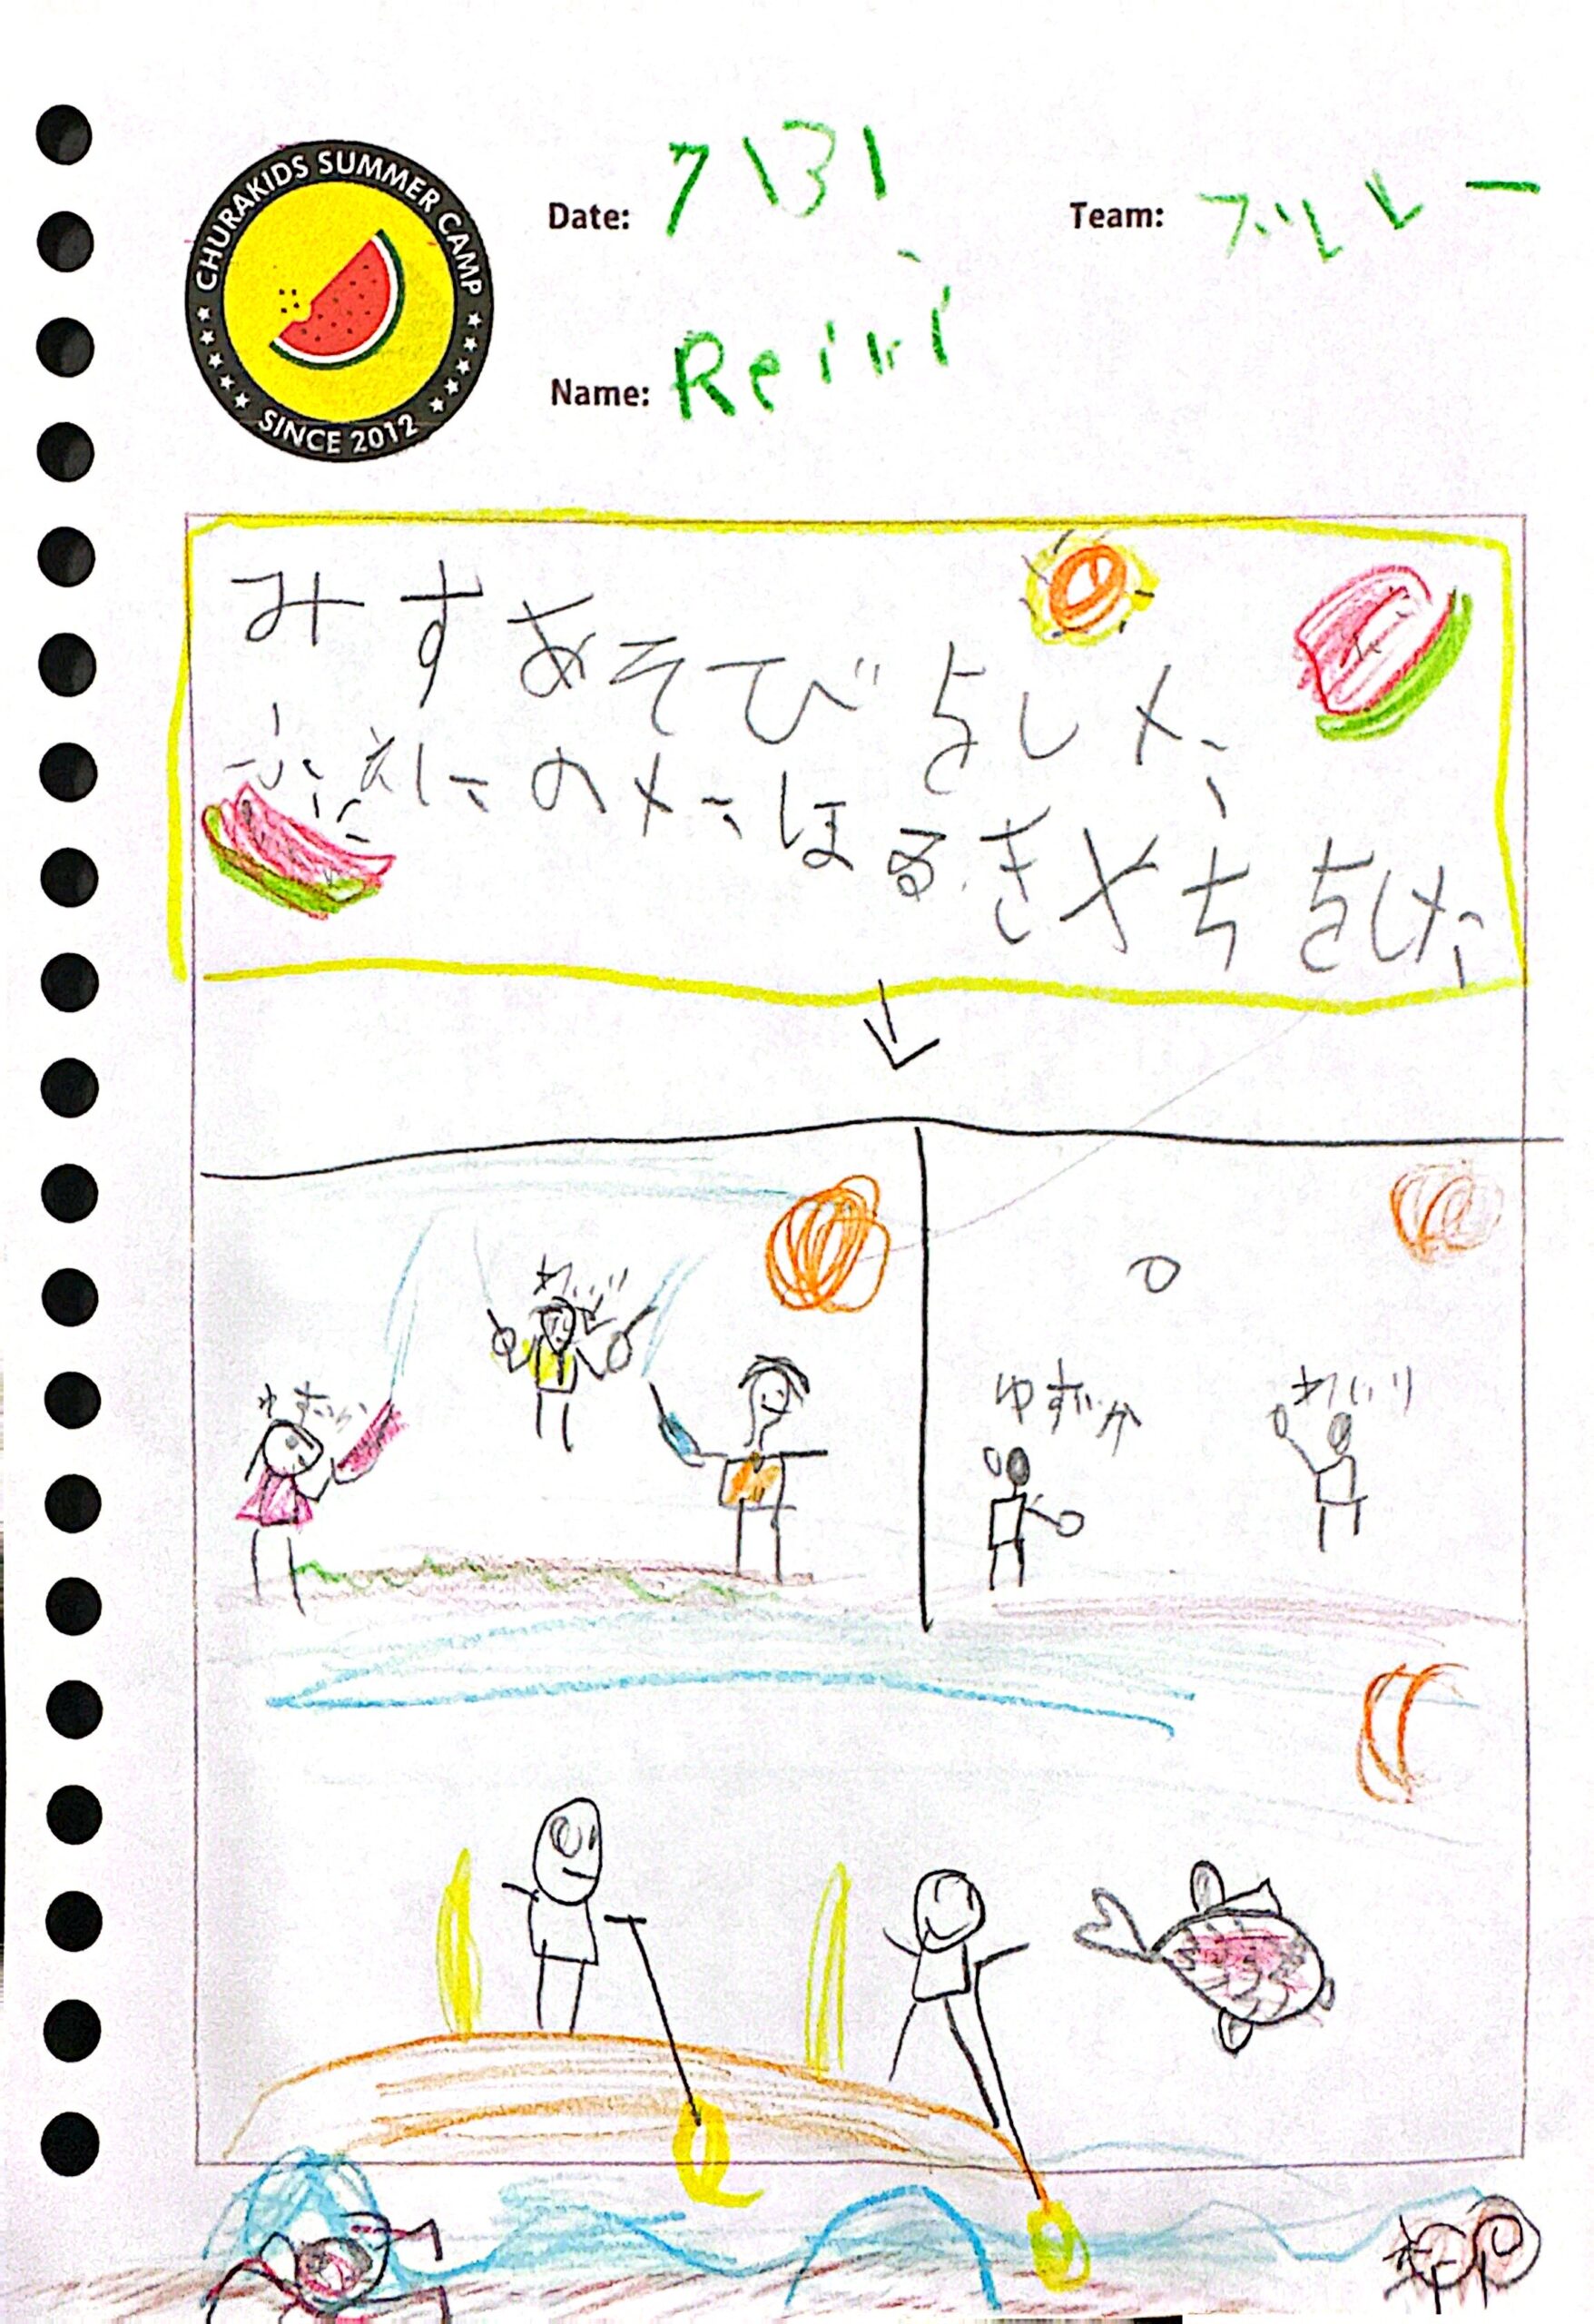 CHURAKIDS SUMMER CAMP
SINCE 2012
Date: 7/31
Team: ブルー
Name: Reiri
みすあそびをした
ふねにのたほるきやちをした
れいり
ゆずか
ゆずか
れいり